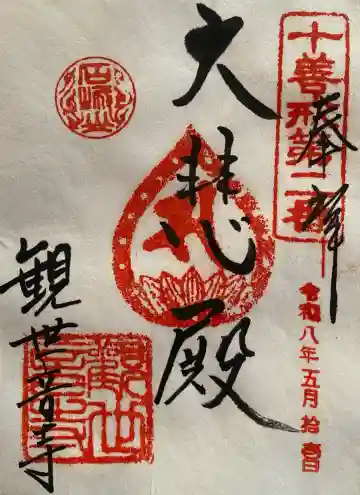 十善戒第二番
奉拝
令和八年五月拾壹日
大悲殿
観世音寺